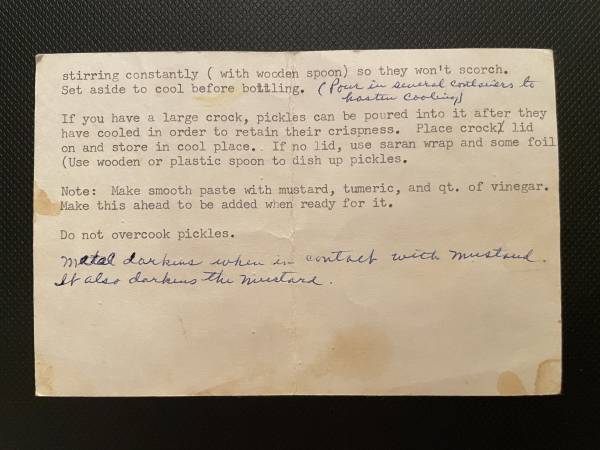 stirring constantly ( with wooden spoon) so they won't scorch.
Set aside to cool before bottling. (Pour in several containers to
hasten cooling)
If you have a large crock, pickles can be poured into it after they
have cooled in order to retain their crispness. Place crock lid
on and store in cool place.. If no lid, use saran wrap and some foil
(Use wooden or plastic spoon to dish up pickles.
Note: Make smooth paste with mustard, tumeric, and qt. of vinegar.
Make this ahead to be added when ready for it.
Do not overcook pickles.
Metal darkens when in contact with mustard.
It also darkens the mustard.